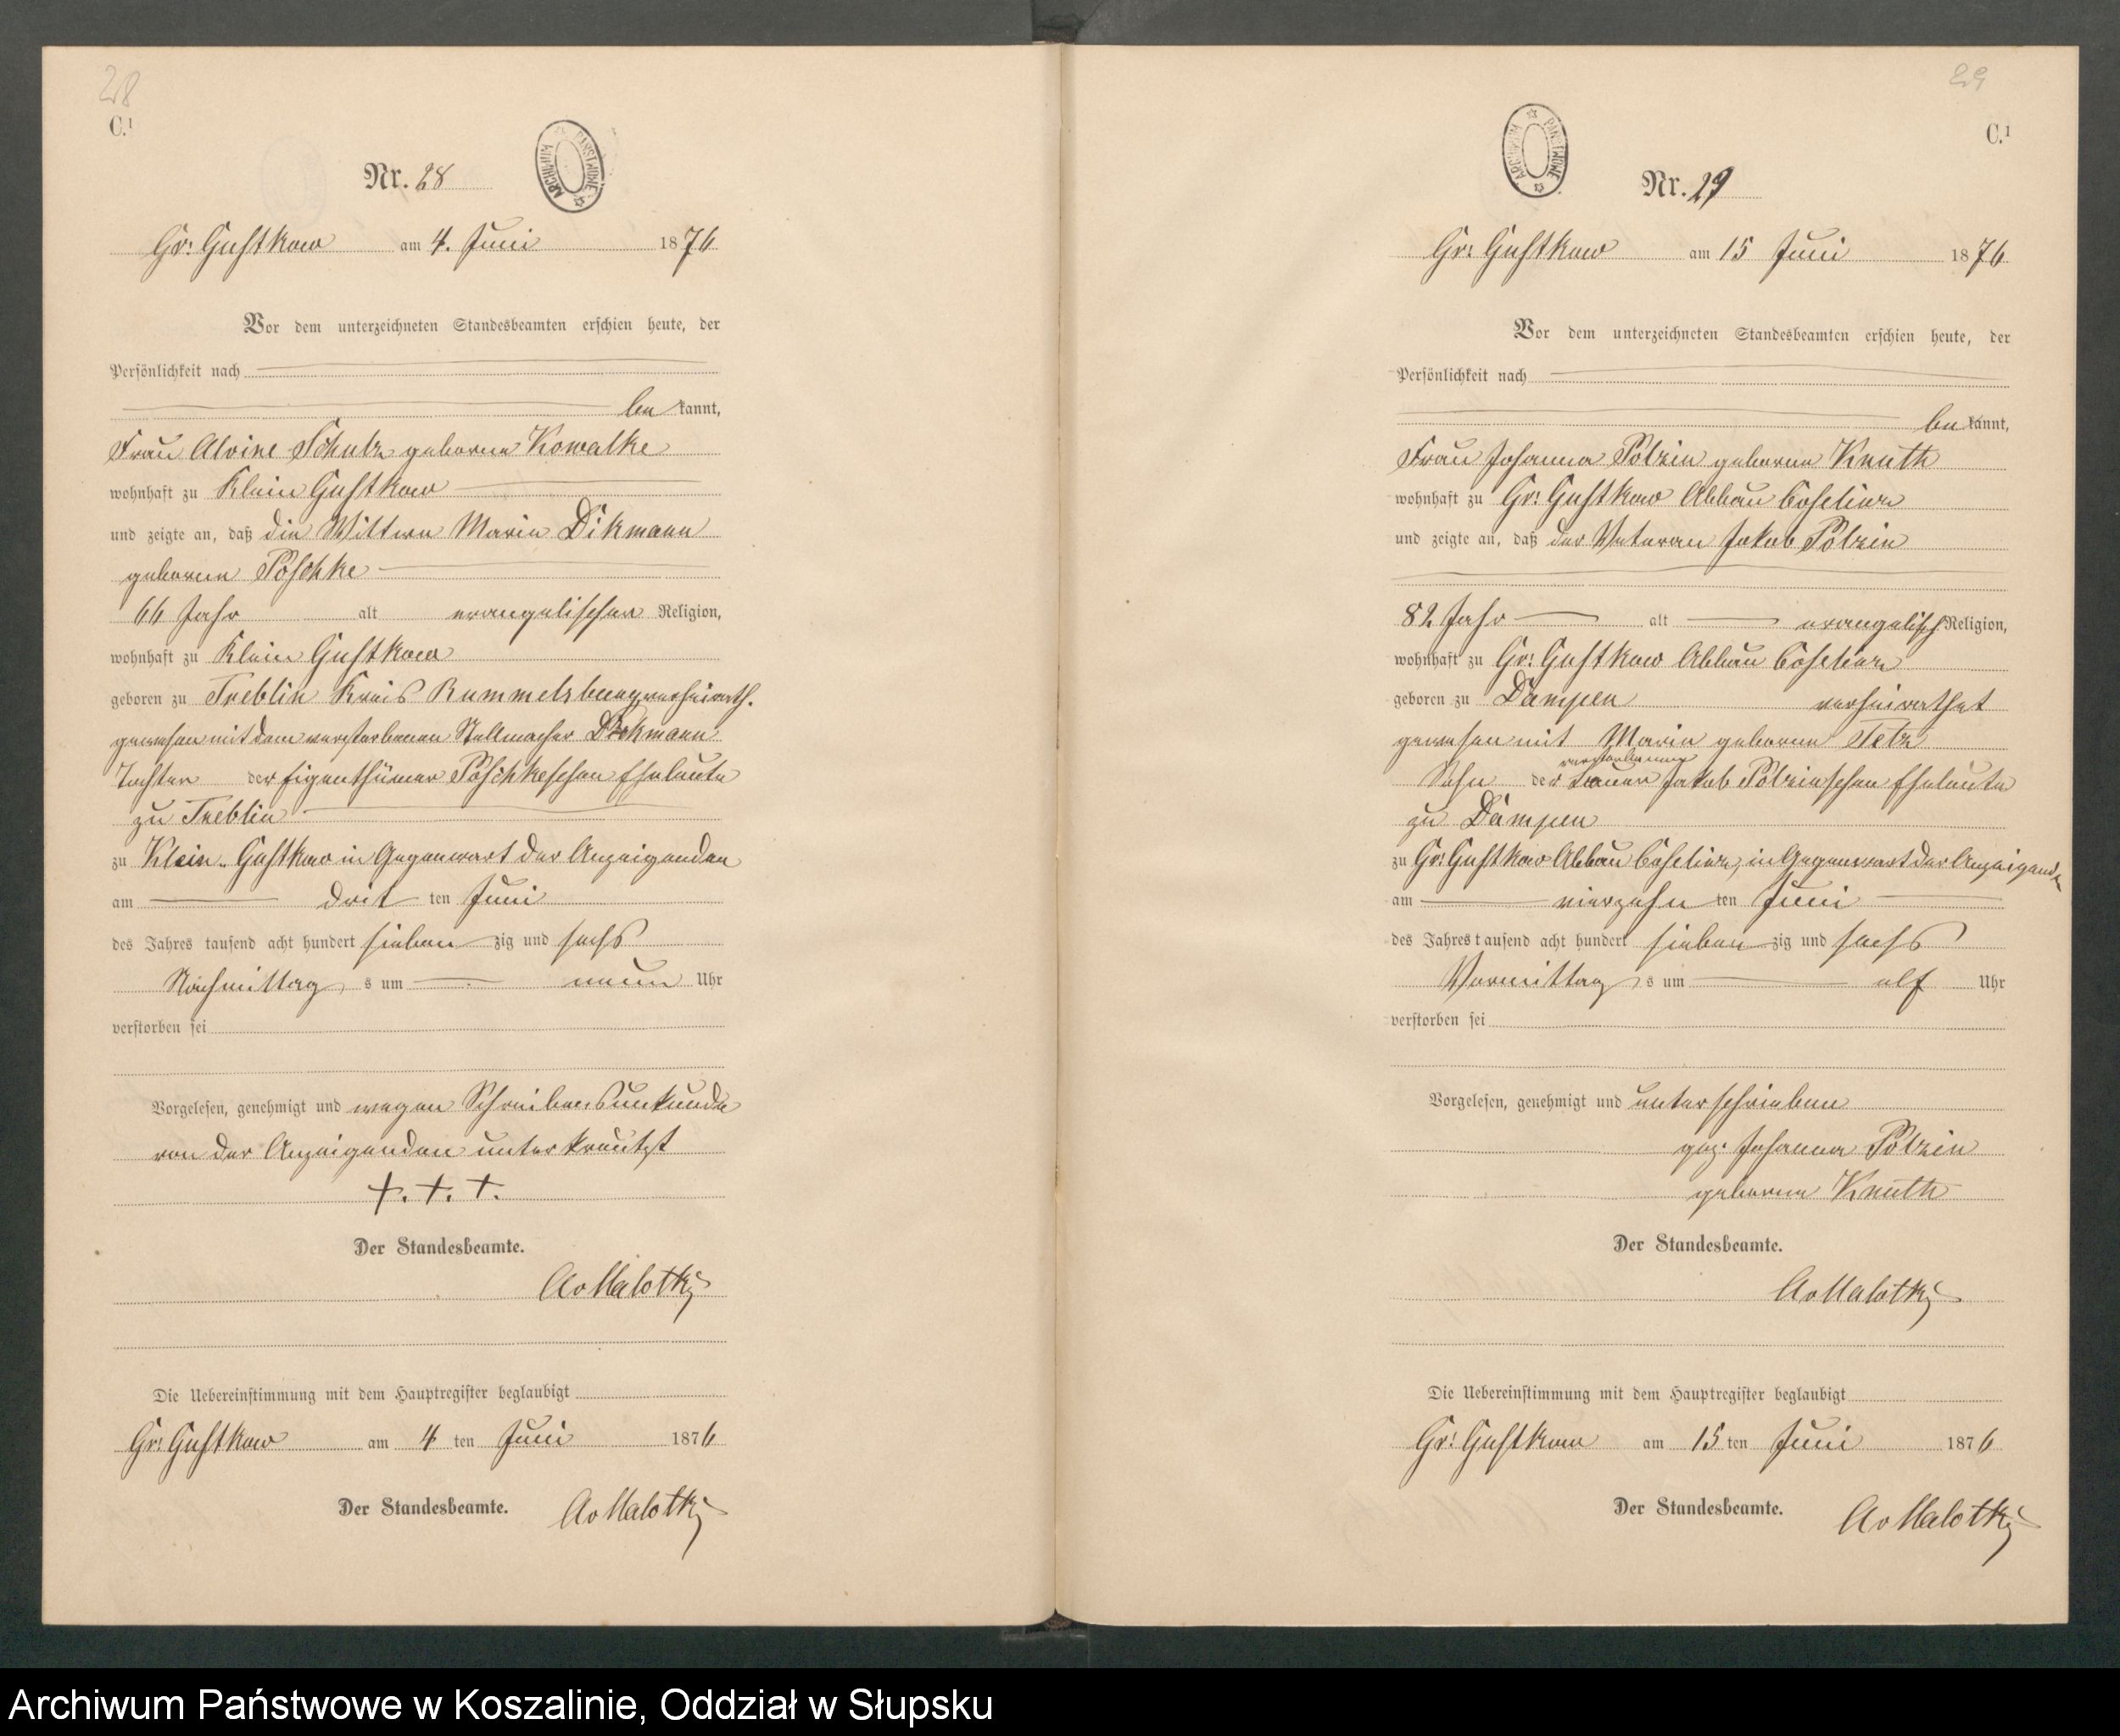 28
C.¹
Nr. 28
ARCHIWUM PAŃSTWOWE
Gr: Gustkow am 4. Juni 1876
Vor dem unterzeichneten Standesbeamten erschien heute, der
Persönlichkeit nach
be kannt,
Frau Alvine Schulz geborne Kowalke
wohnhaft zu Klein Gustkow
und zeigte an, daß die Wittwe Marie Dikmann
geborne Pöschke
66 Jahr alt evangelischer Religion,
wohnhaft zu Klein Gustkow
geboren zu Treblin Kreis Rummelsburg, verheirath.
gewesen mit dem verstorbenen Stellmacher Dikmann
Tochter der Eigenthümer Pöschkeschen Eheleute
zu Treblin
zu Klein-Gustkow in Gegenwart der Anzeigenden
am drit ten Juni
des Jahres tausend acht hundert sieben zig und sechs
Nachmittag s um neun Uhr
verstorben sei
Vorgelesen, genehmigt und wegen Schreibensunkunde
von der Anzeigenden unterkreutzt
+. +. +.
Der Standesbeamte.
AvMalotky
Die Uebereinstimmung mit dem Hauptregister beglaubigt
Gr: Gustkow am 4 ten Juni 1876
Der Standesbeamte. AvMalotky
29
C.¹
ARCHIWUM PAŃSTWOWE
Nr. 29
Gr: Gustkow am 15 Juni 1876
Vor dem unterzeichneten Standesbeamten erschien heute, der
Persönlichkeit nach
be kannt,
Frau Johanna Pölzin geborne Knuth
wohnhaft zu Gr: Gustkow Abbau
und zeigte an, daß der Veteran Jakob Pölzin
82 Jahr alt evangelisch Religion,
wohnhaft zu Gr: Gustkow Abbau
geboren zu Dampen verheirathet
gewesen mit Marie geborne Tetz
verstorbenen
Sohn der Bauer Jakob Pölzinschen Eheleute
zu Dampen
zu Gr: Gustkow Abbau in Gegenwart der Anzeigenden
am vierzehn ten Juni
des Jahres tausend acht hundert sieben zig und sechs
Vormittag s um elf Uhr
verstorben sei
Vorgelesen, genehmigt und unterschrieben
gez. Johanna Pölzin
geborne Knuth
Der Standesbeamte.
AvMalotky
Die Uebereinstimmung mit dem Hauptregister beglaubigt
Gr: Gustkow am 15 ten Juni 1876
Der Standesbeamte. AvMalotky
Archiwum Państwowe w Koszalinie, Oddział w Słupsku